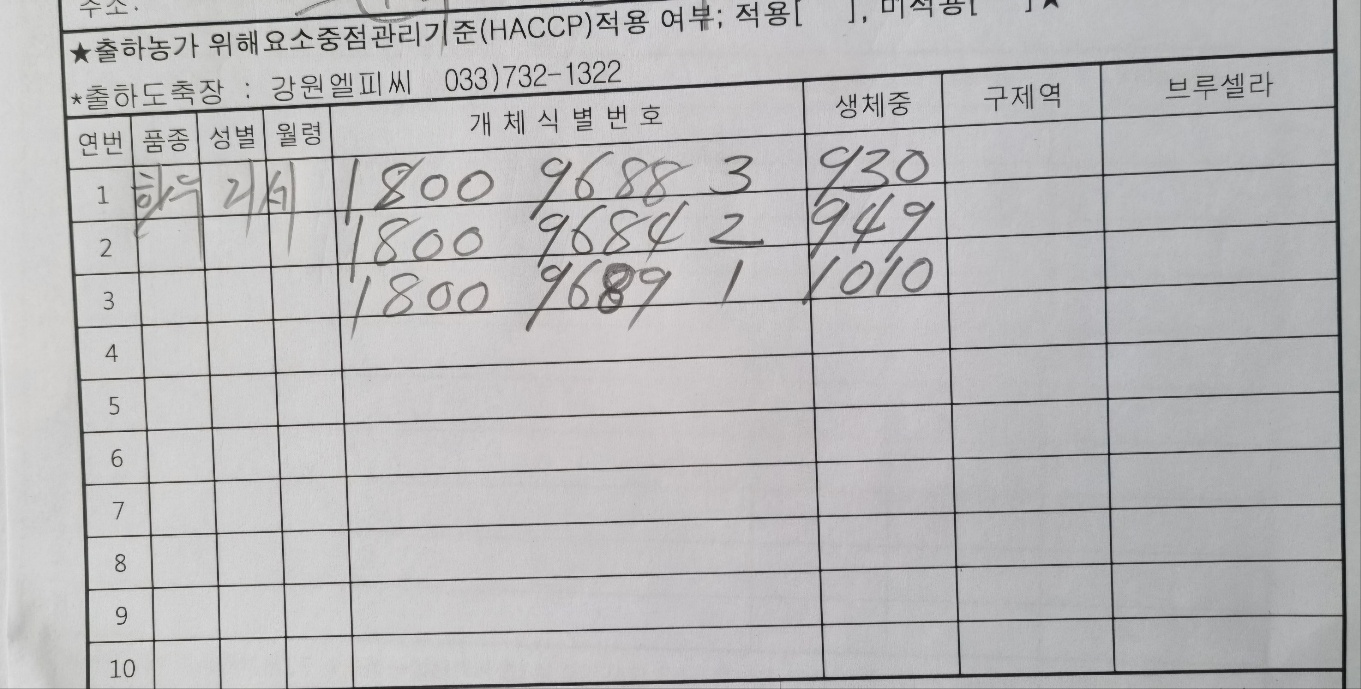 주소:
★출하농가 위해요소중점관리기준(HACCP)적용 여부; 적용[ ], 미적용[ ]★
*출하도축장 : 강원엘피씨 033)732-1322
연번 품종 성별 월령 개 체 식 별 번 호 생체중 구제역 브루셀라
1 한우 거세 1800 9688 3 930
2 1800 9684 2 949
3 1800 9689 1 1010
4
5
6
7
8
9
10